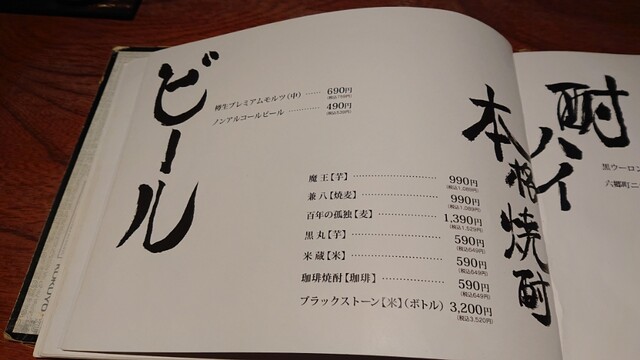 ビール
樽生プレミアムモルツ（中） …… 690円
（税込759円）
ノンアルコールビール ………… 490円
（税込539円）
本格焼酎
魔王【芋】 ………………… 990円
（税込1,089円）
兼八【焼麦】 ……………… 990円
（税込1,089円）
百年の孤独【麦】 …………… 1,390円
（税込1,529円）
黒丸【芋】 ………………… 590円
（税込649円）
米蔵【米】 ………………… 590円
（税込649円）
珈琲焼酎【珈琲】 …………… 590円
（税込649円）
ブラックストーン【米】（ボトル） 3,200円
（税込3,520円）
酎ハイ
黒ウーロン
六郷町ニ
KOKUYO